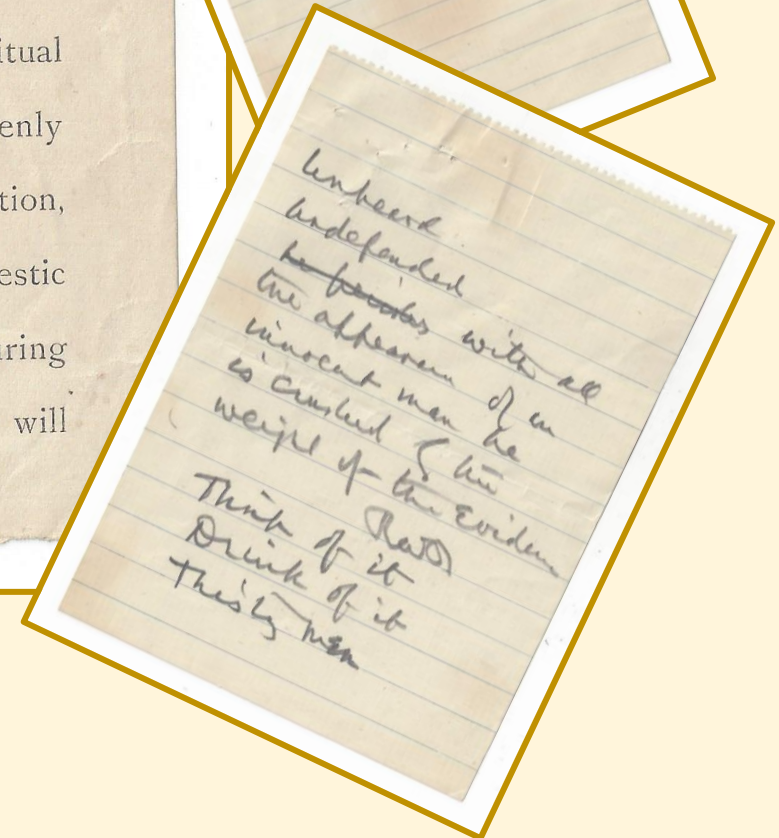 itual
enly
tion,
estic
uring
will
Unheard
Undefended
he perishes with all
the appearance of an
innocent man he
is crushed by the
weight of the Evidence
Think of it
Drink of it
Thirsty men